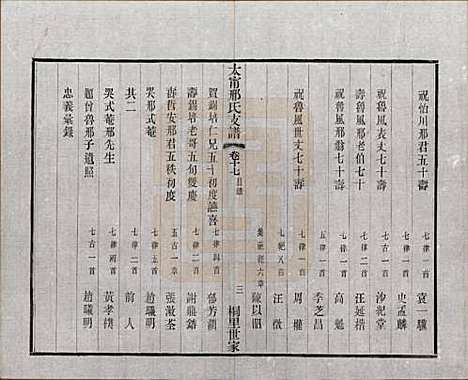 祝怡川邢君五十壽 七律一首 袁一驥
祝魯風表丈七十壽 七律二首 史孟麟
壽魯風邢老伯七十 七律一首 沙紀堂
祝魯風邢君七十壽 七律一首 汪錯
祝魯風邢翁七十壽 七律一首 高魁
五律一首 李芝昌
祝魯風世丈七十壽 七律一首 周權
七絕八首 汪徵
集 六章 陳以昭
太甯邢氏支譜 卷十七 目錄 三 桐里世家
賀錫培仁兄五十初度誌喜 七律四首 郁芳蘭
壽錫培老哥五旬雙慶 七律二首 謝 鐈
壽哲安邢君五秩初度 五古一章 張瀓荃
哭邢式菴 七律五首 趙曦明
其二 七律二首 前人
哭式菴邢先生 七律二首 黃孝模
題曾魯邢子遺照 七古一首 趙曦明
忠義彙錄